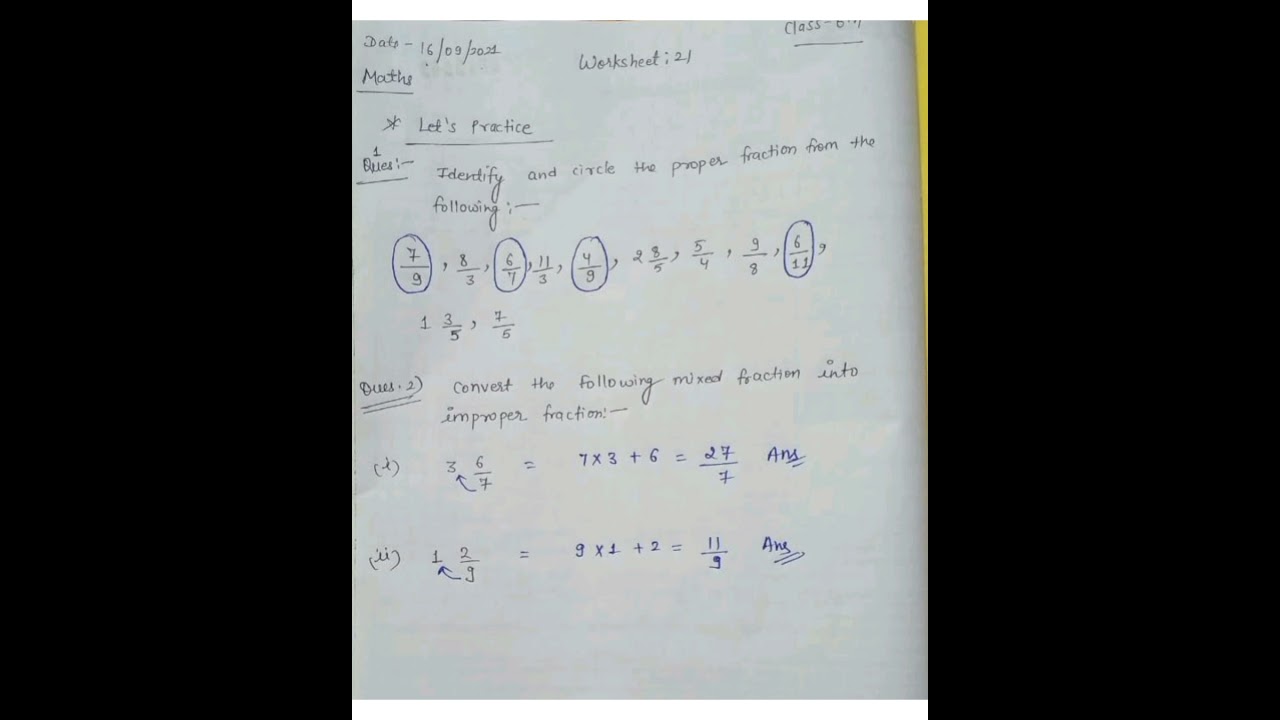 Class-6th
Date - 16/09/2021
Worksheet: 21
Maths
* Let's Practice
1
Ques:- Identify and circle the proper fraction from the
following:—
7/9, 8/3, 6/7, 11/3, 4/9, 2 8/5, 5/4, 9/8, 6/11,
1 3/5, 7/5
Ques. 2) Convert the following mixed fraction into
improper fraction:—
(i) 3 6/7 = 7×3 + 6 = 27/7 Ans
(ii) 1 2/9 = 9×1 + 2 = 11/9 Ans